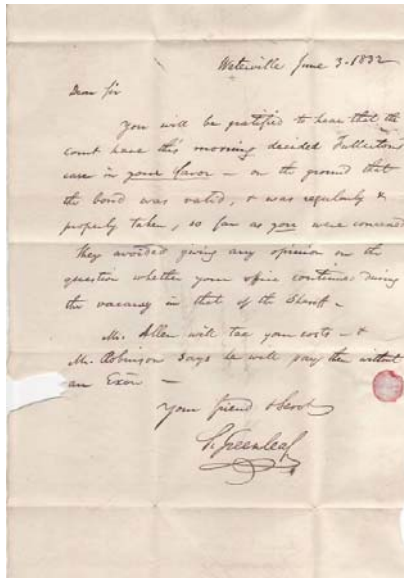 Waterville June 3. 1832
Dear Sir
You will be gratified to hear that the
court have this morning decided Fullerton's
case in your favor – on the ground that
the bond was valid, & was regularly &
properly taken, so far as you were concerned
They avoided giving any opinion on the
question whether your office continues during
the vacancy in that of the Sheriff.
Mr. Allen will tax your costs – &
Mr. Robinson says he will pay them without
an Exōn –
Your friend & Servt
S. Greenleaf